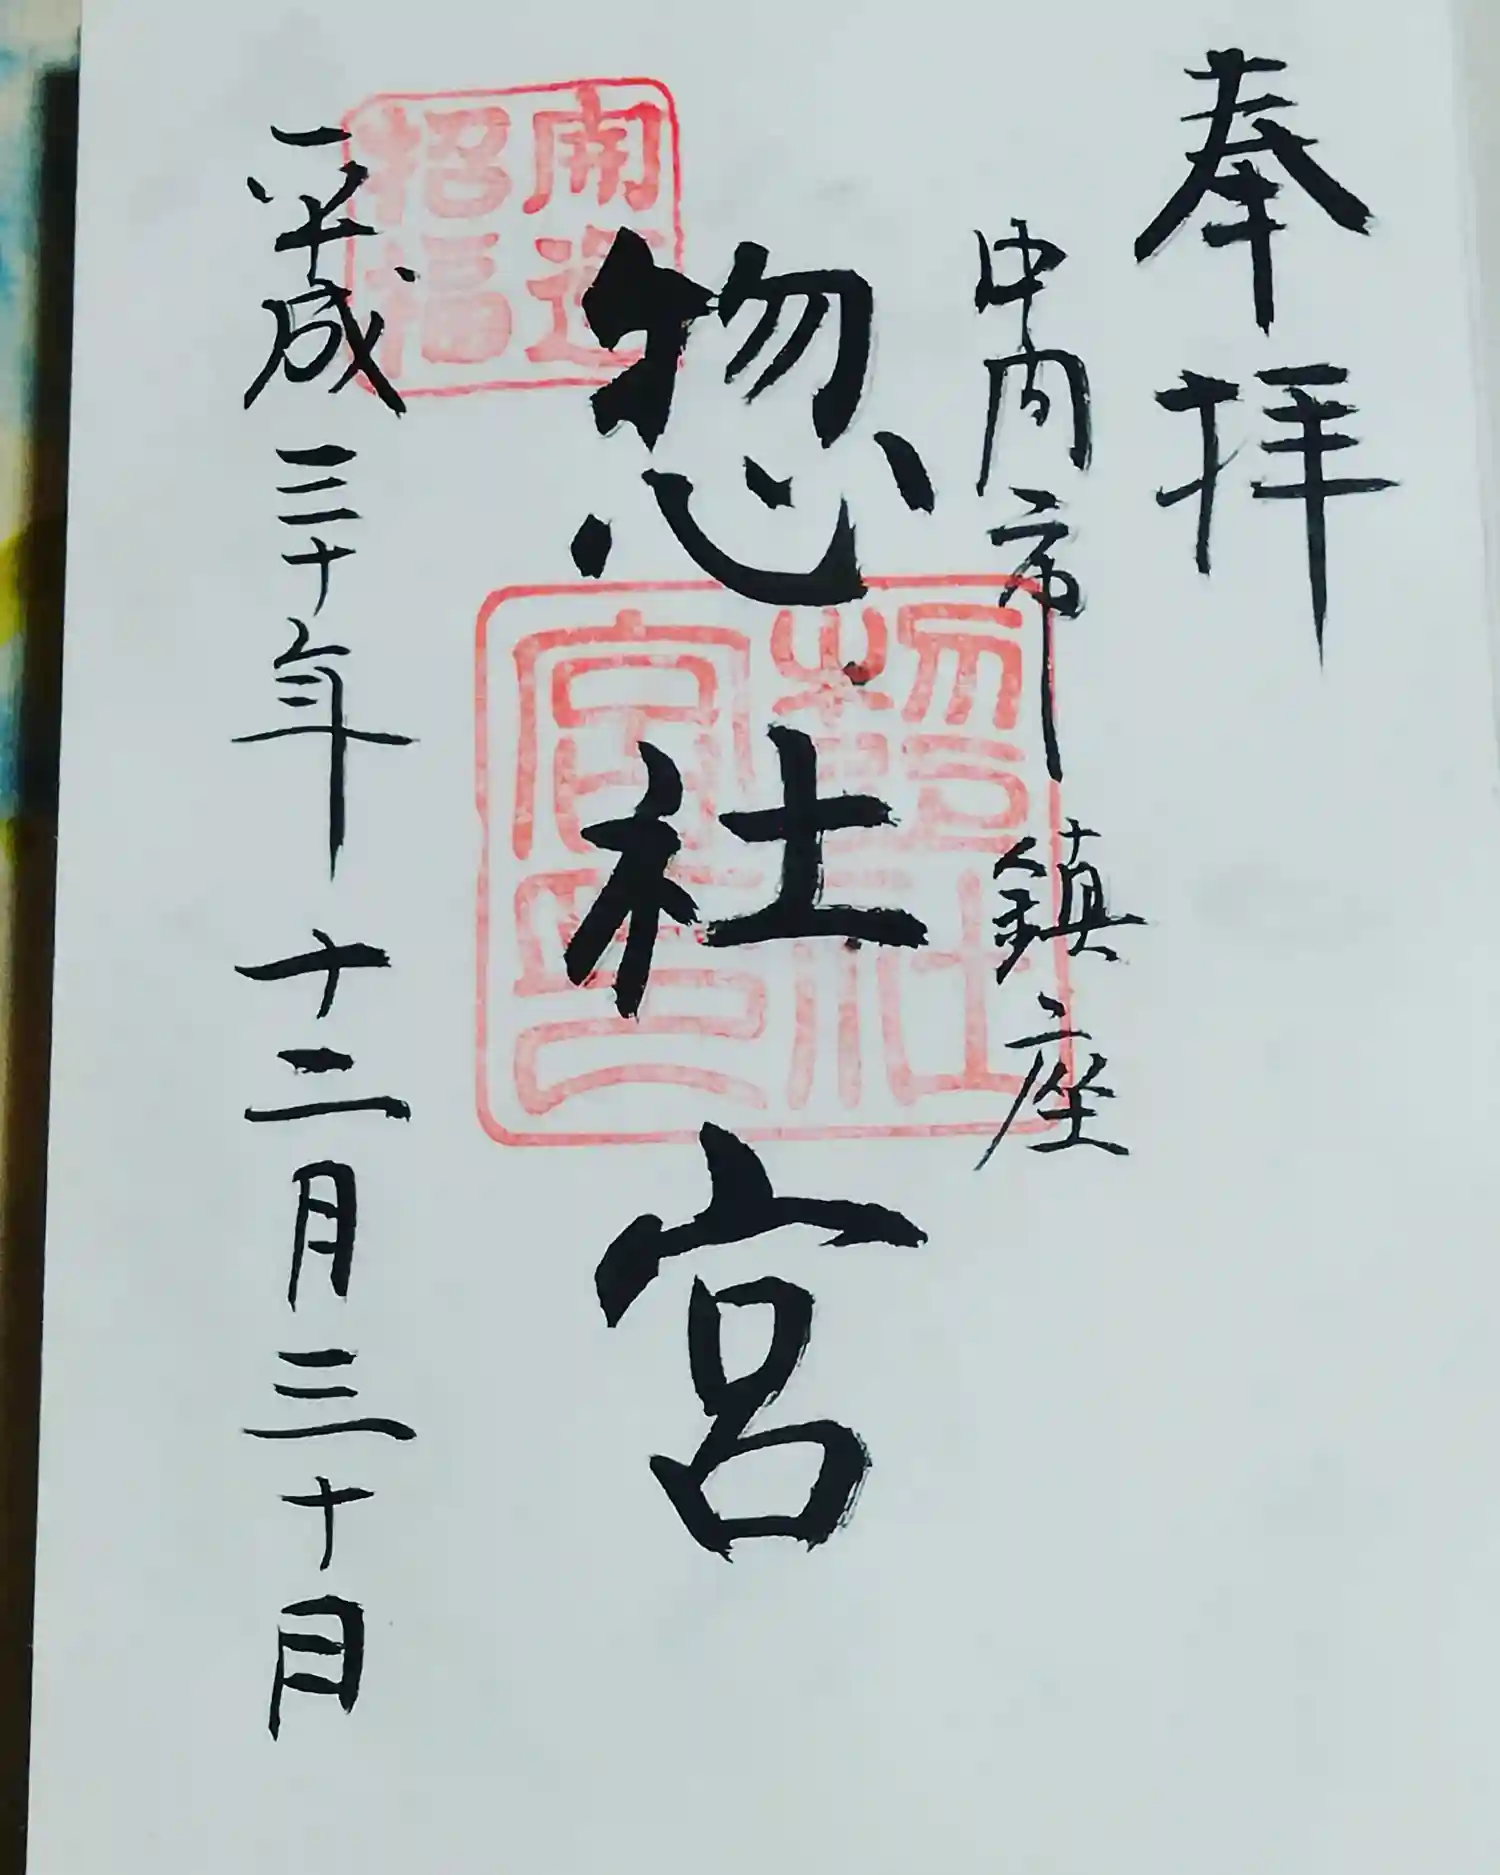 奉拝
中間市 鎮座
惣社宮
平成三十年 十二月三十日
開運
招福
惣社
宮印